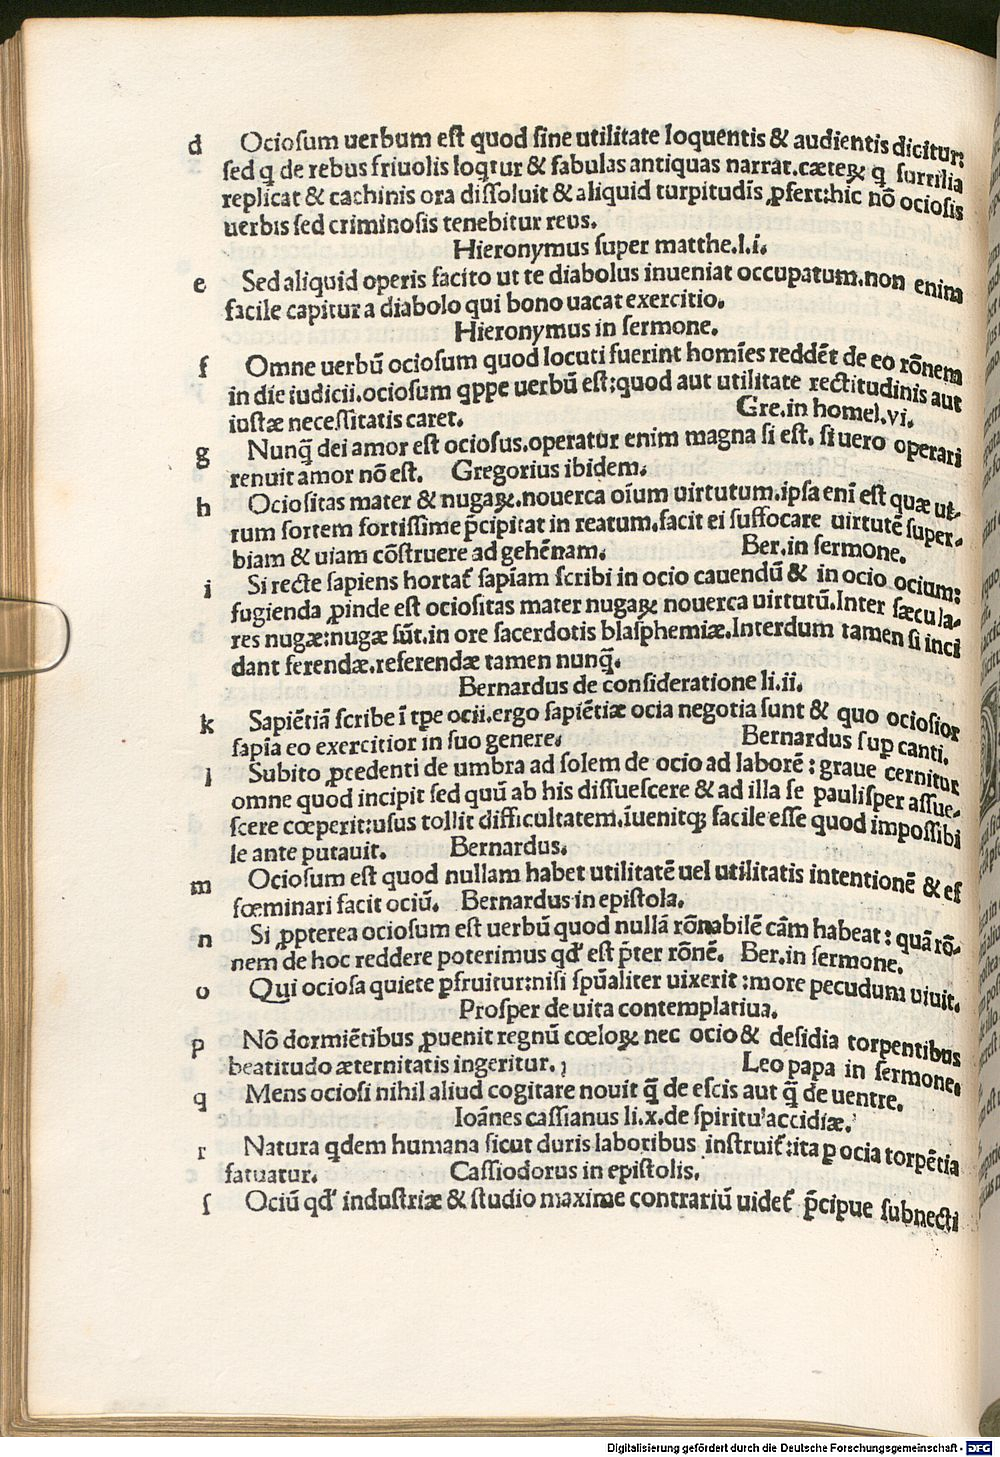 d Ocioſum uerbum eſt quod ſine utilitate loquentis & audientis dicitur:
ſed q̣ de rebus friuolis loqtur & fabulas antiquas narrat. cæteꝝ q̣ ſurrilia
replicat & cachinis ora diſſoluit & aliquid turpitudīs ꝓfert:hic nō ocioſis
uerbis ſed criminoſis tenebitur reus.
Hieronymus ſuper matthe.l.i.
e Sed aliquid operis facito ut te diabolus inueniat occupatum.non enim
facile capitur a diabolo qui bono uacat exercitio.
Hieronymus in ſermone.
f Omne uerbū ocioſum quod locuti fuerint homīes reddēt de eo rōnem
in die iudicii.ocioſum qppe uerbū eſt:quod aut utilitate rectitudinis aut
iuſtæ neceſſitatis caret. Gre.in homel.vi.
g Nunq̄ dei amor eſt ocioſus.operatur enim magna ſi eſt. ſi uero operari
renuit amor nō eſt. Gregorius ibidem.
h Ocioſitas mater & nugaꝝ.nouerca oīum uirtutum.ipſa enī eſt quæ ut-
rum fortem fortiſſime p̄cipitat in reatum.facit ei ſuffocare uirtutē ſuper-
biam & uiam cōſtruere ad gehēnam. Ber.in ſermone.
i Si recte ſapiens hortat̄ ſapīam ſcribi in ocio cauendū & in ocio ocium:
fugienda ꝓinde eſt ocioſitas mater nugaꝝ nouerca uirtutū.Inter ſæcula-
res nugæ:nugæ ſūt.in ore ſacerdotis blaſphemiæ.Interdum tamen ſi inci
dant ferendæ.referendæ tamen nunq̄.
Bernardus de conſideratione li.ii.
k Sapiētiā ſcribe ī tpe ocii.ergo ſapiētiæ ocia negotia ſunt & quo ocioſior
ſapia eo exercitior in ſuo genere. Bernardus ſup canti.
l Subito ꝓcedenti de umbra ad ſolem de ocio ad laborē : graue cernitur
omne quod incipit ſed quū ab his diſſueſcere & ad illa ſe pauliſper aſſue-
ſcere cœperit:uſus tollit difficultatem.īuenitqꝫ facile eſſe quod impoſſibi
le ante putauit. Bernardus.
m Ocioſum eſt quod nullam habet utilitatē uel utilitatis intentionē & ef
fœminari facit ociū. Bernardus in epiſtola.
n Si ꝓpterea ocioſum eſt uerbū quod nullā rōnabilē cām habeat : quā rō-
nem de hoc reddere poterimus qđ eſt p̄ter rōnē. Ber.in ſermone.
o Qui ocioſa quiete pfruitur:niſi ſpūaliter uixerit :more pecudum uiuit.
Proſper de uita contemplatiua.
p Nō dormiētibus ꝓuenit regnū cœloꝝ nec ocio & deſidia torpentibus
beatitudo æternitatis ingeritur. Leo papa in ſermone.
q Mens ocioſi nihil aliud cogitare nouit q̄ de eſcis aut q̄ de uentre.
Ioānes caſſianus li.x.de ſpiritu accidiæ.
r Natura qdem humana ſicut duris laboribus inſtruit̄:ita ꝑ ocia torpētia
fatuatur. Caſſiodorus in epiſtolis.
ſ Ociū qđ induſtriæ & ſtudio maxime contrariū uidet̄ p̄cipue ſubnecti
Digitalisierung gefördert durch die Deutsche Forschungsgemeinschaft - DFG